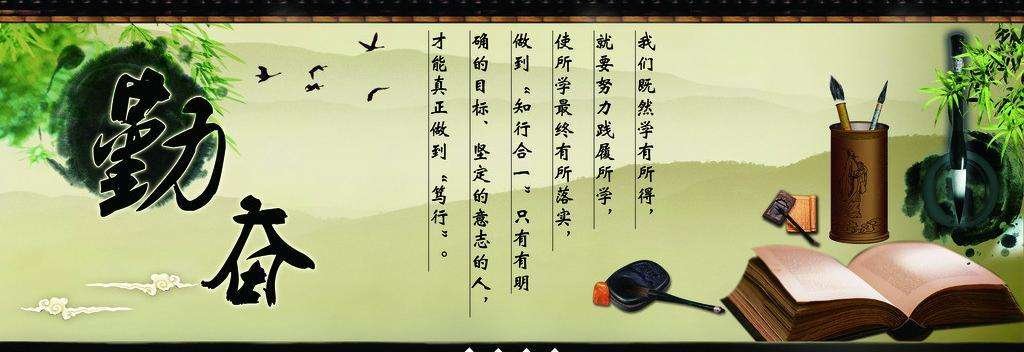 勤奋
我们既然学有所得，
就要努力践履所学，
使所学最终有所落实，
做到“知行合一”只有有明
确的目标、坚定的意志的人，
才能真正做到“笃行”。